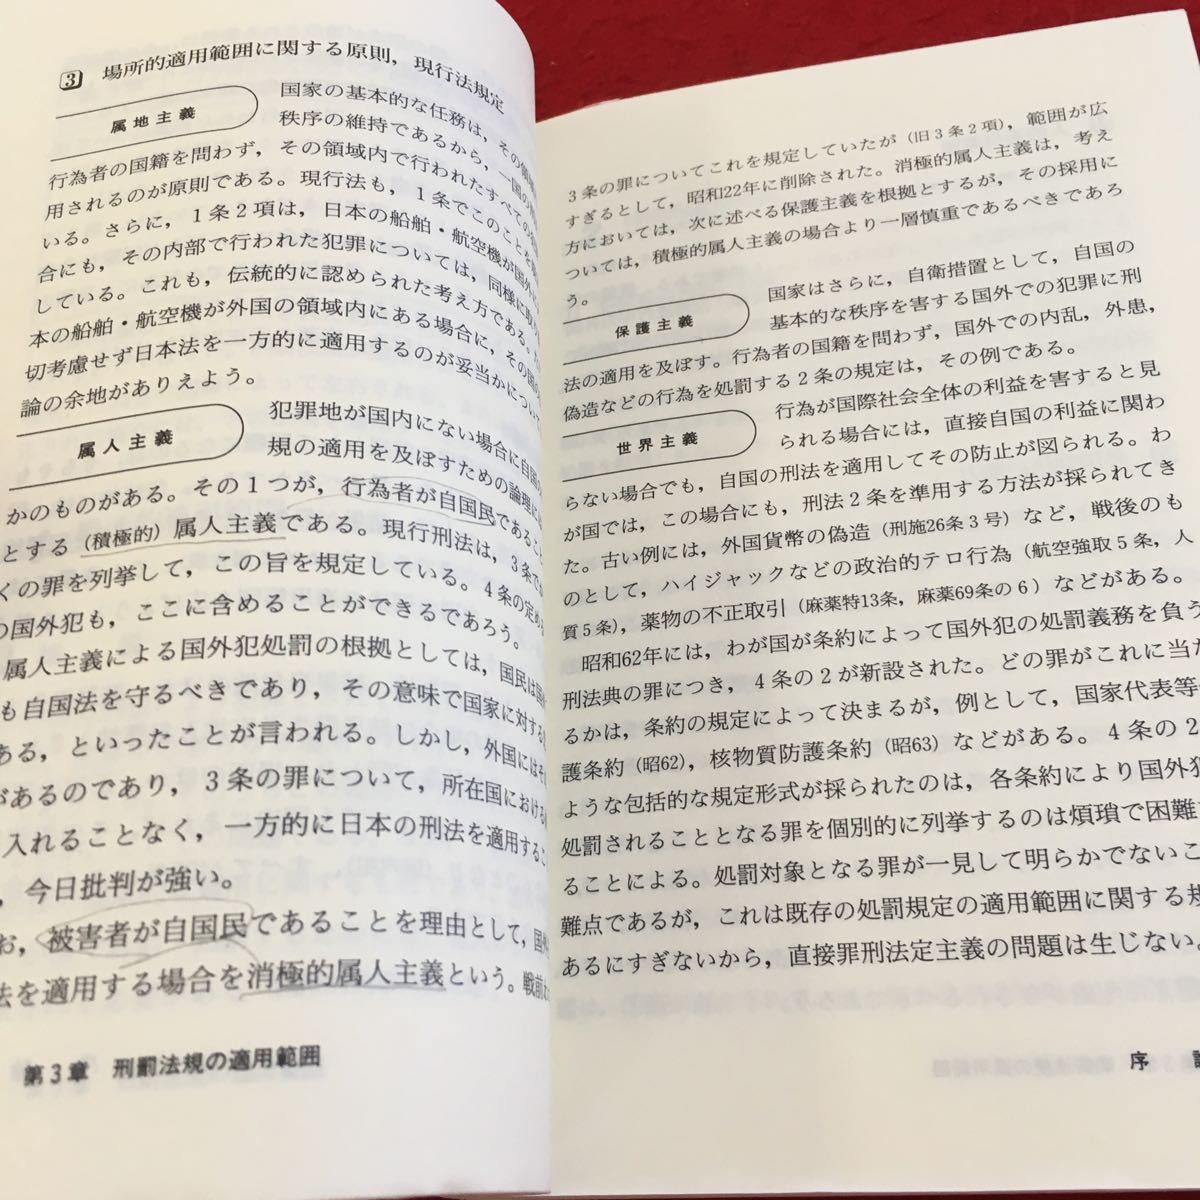 3 場所的適用範囲に関する原則，現行法規定
属地主義
国家の基本的な任務は，その領域
秩序の維持であるから，一国の
行為者の国籍を問わず，その領域内で行われたすべての
用されるのが原則である。現行法も，1条でこのことを
いる。さらに，1条2項は，日本の船舶・航空機が国外に
合にも，その内部で行われた犯罪については，同様に
している。これも，伝統的に認められた考え方である。
本の船舶・航空機が外国の領域内にある場合に，その国の
切考慮せず日本法を一方的に適用するのが妥当かについて
論の余地がありえよう。
属人主義
犯罪地が国内にない場合に自国
規の適用を及ぼすための論理に
かのものがある。その1つが，行為者が自国民であること
とする（積極的）属人主義である。現行刑法は，3条で
くの罪を列挙して，この旨を規定している。4条の定める
の国外犯も，ここに含めることができるであろう。
属人主義による国外犯処罰の根拠としては，国民は国
も自国法を守るべきであり，その意味で国家に対する
ある，といったことが言われる。しかし，外国にはそ
があるのであり，3条の罪について，所在国における
入れることなく，一方的に日本の刑法を適用するこ
，今日批判が強い。
お，被害者が自国民であることを理由として，国
法を適用する場合を消極的属人主義という。戦前
第3章 刑罰法規の適用範囲
3条の罪についてこれを規定していたが（旧3条2項），範囲が広
すぎるとして，昭和22年に削除された。消極的属人主義は，考え
方においては，次に述べる保護主義を根拠とするが，その採用に
ついては，積極的属人主義の場合より一層慎重であるべきであろ
う。
保護主義
国家はさらに，自衛措置として，自国の
基本的な秩序を害する国外での犯罪に刑
法の適用を及ぼす。行為者の国籍を問わず，国外での内乱，外患，
偽造などの行為を処罰する2条の規定は，その例である。
世界主義
行為が国際社会全体の利益を害すると見
られる場合には，直接自国の利益に関わ
らない場合でも，自国の刑法を適用してその防止が図られる。わ
が国では，この場合にも，刑法2条を準用する方法が採られてき
た。古い例には，外国貨幣の偽造（刑施26条3号）など，戦後のも
のとして，ハイジャックなどの政治的テロ行為（航空強取5条，人
質5条），薬物の不正取引（麻薬特13条，麻薬69条の6）などがある。
昭和62年には，わが国が条約によって国外犯の処罰義務を負う
刑法典の罪につき，4条の2が新設された。どの罪がこれに当た
るかは，条約の規定によって決まるが，例として，国家代表等
護条約（昭62），核物質防護条約（昭63）などがある。4条の2
ような包括的な規定形式が採られたのは，各条約により国外犯
処罰されることとなる罪を個別的に列挙するのは煩瑣で困難
ることによる。処罰対象となる罪が一見して明らかでないこ
難点であるが，これは既存の処罰規定の適用範囲に関する規
あるにすぎないから，直接罪刑法定主義の問題は生じない。
序